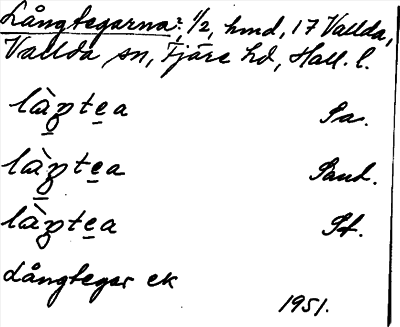 Långtegarna: 1/2, hmd, 17 Vallda,
Vallda sn, Fjäre hd, Hall. l.
là̱p̱te̱a Sa.
là̱p̱te̱a Sand.
là̱p̱te̱a St.
Långtegar ek
1951.